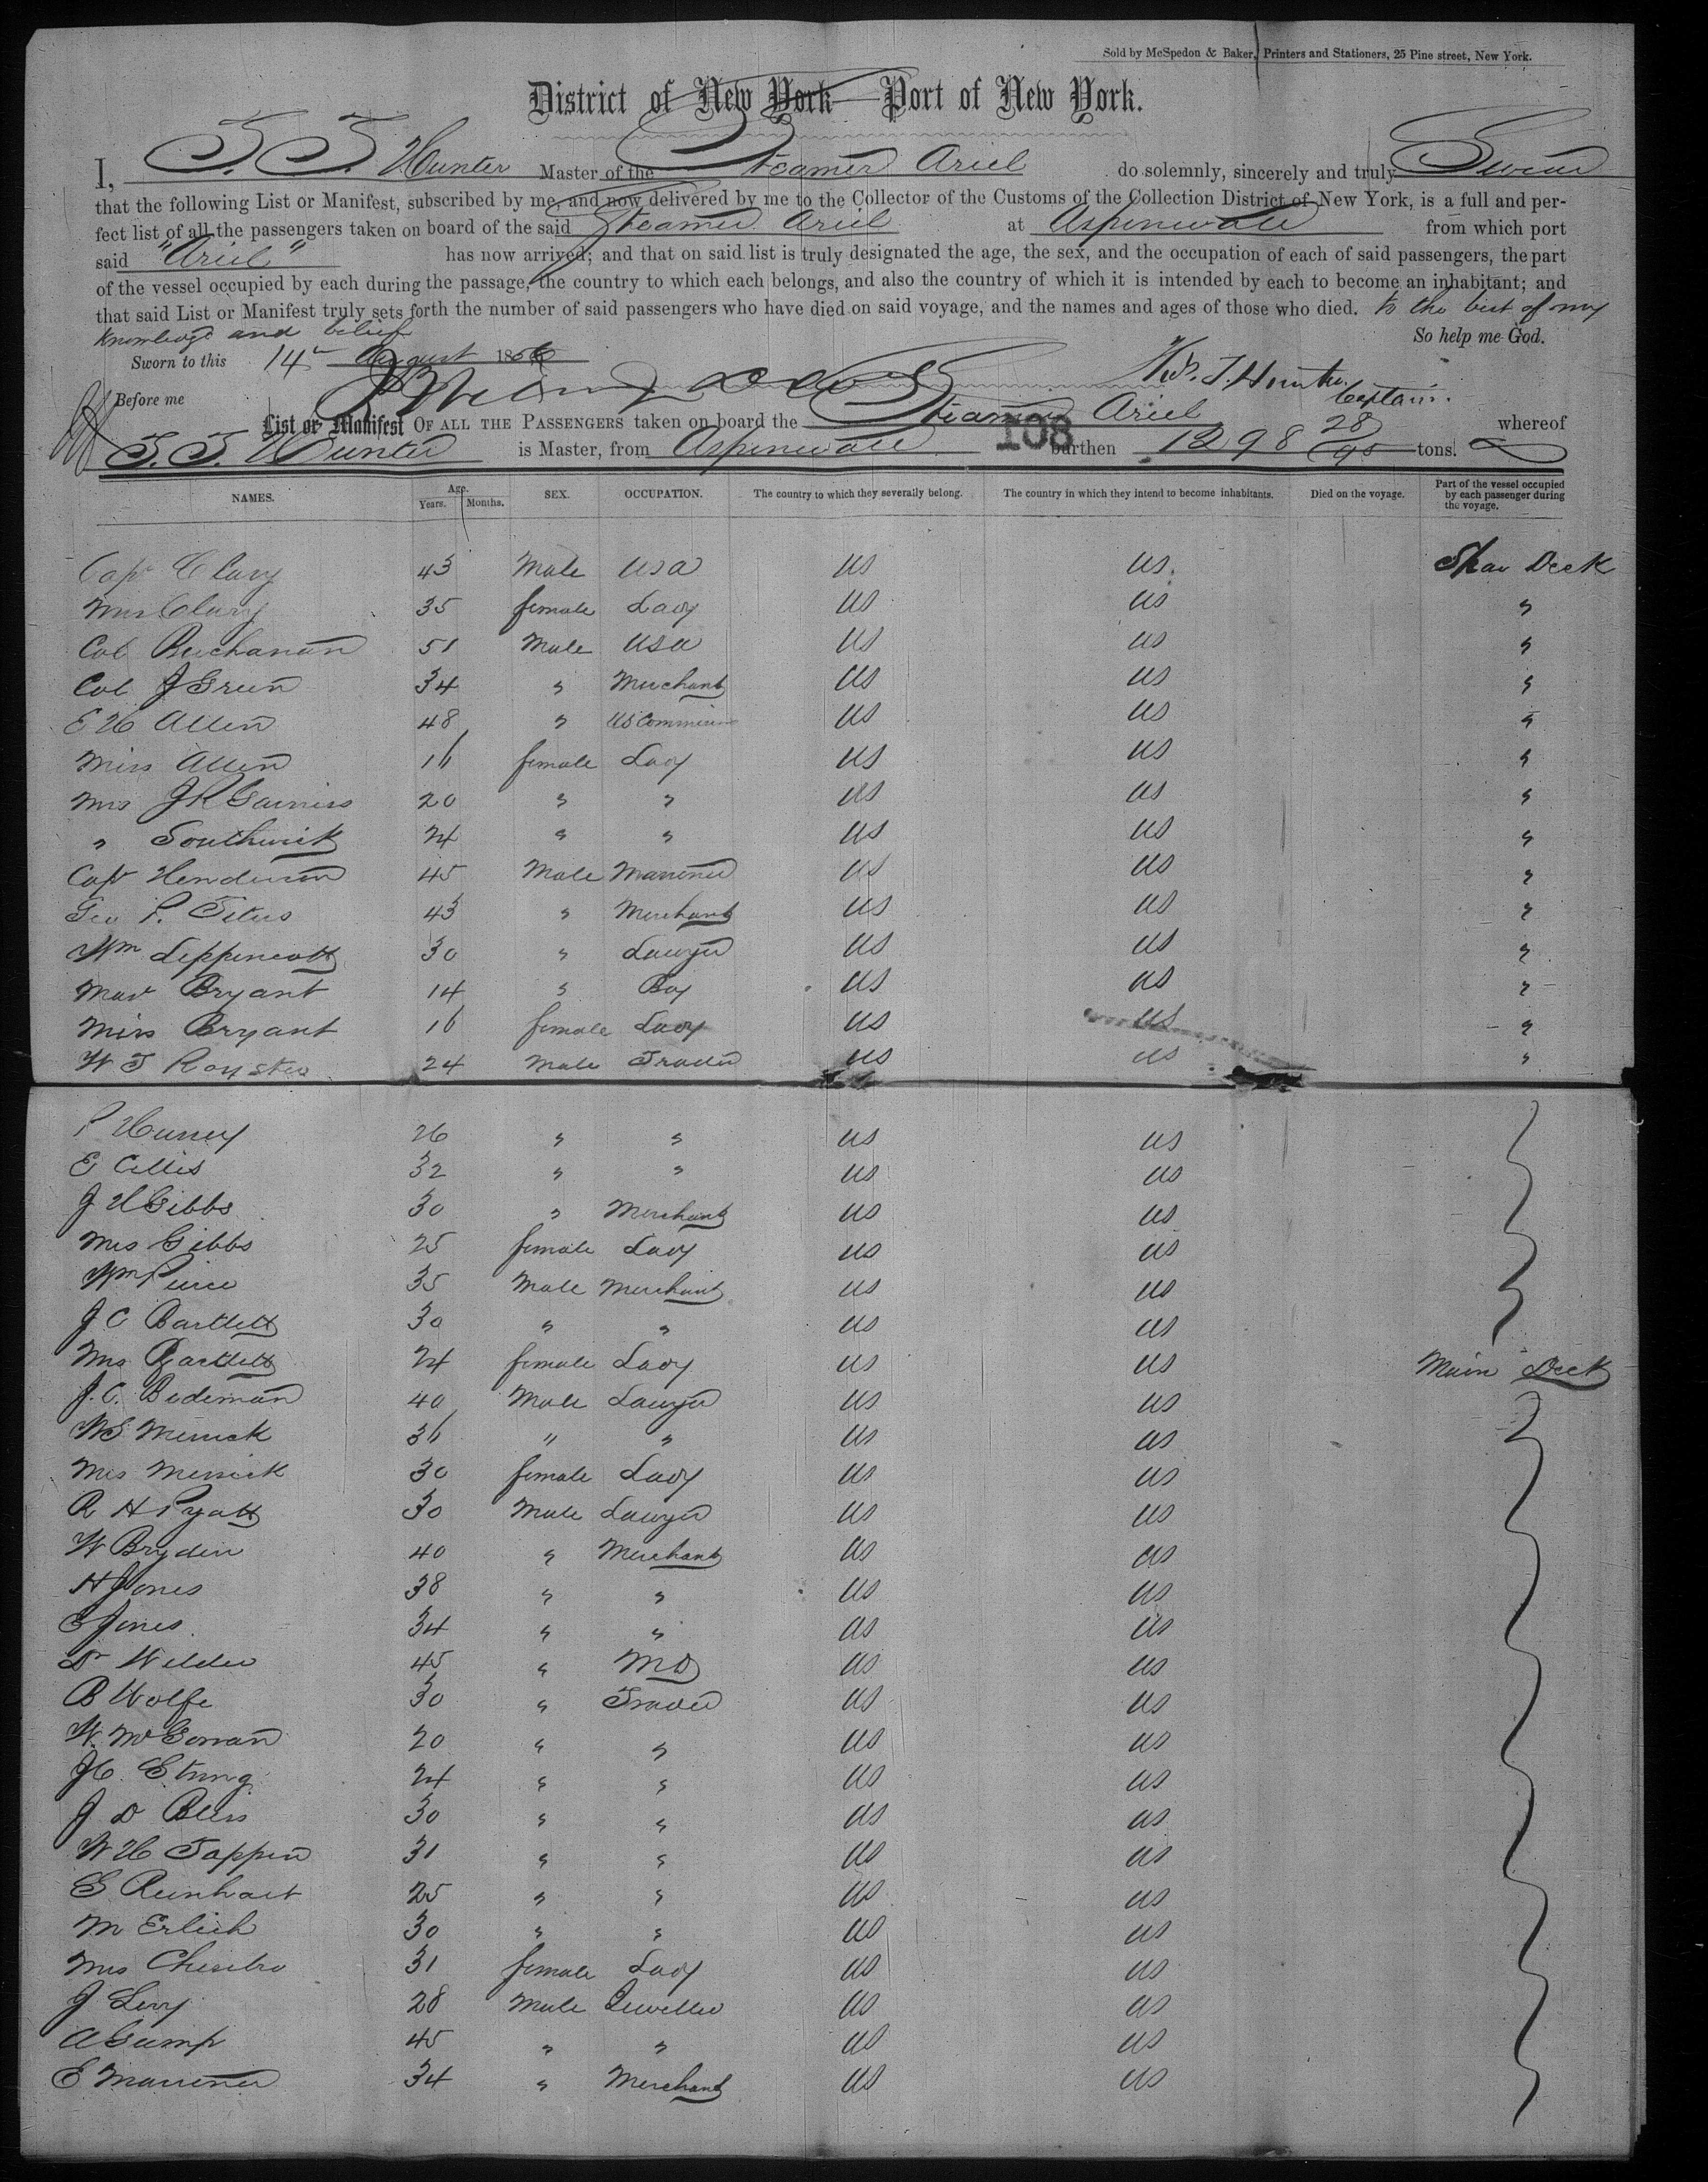 Sold by McSpedon & Baker, Printers and Stationers, 25 Pine street, New York.
District of New York—Port of New York.
I, T. T. Hunter Master of the Steamer Ariel do solemnly, sincerely and truly Swear
that the following List or Manifest, subscribed by me, and now delivered by me to the Collector of the Customs of the Collection District of New York, is a full and per-
fect list of all the passengers taken on board of the said Steamer Ariel at Aspinwall from which port
said "Ariel" has now arrived; and that on said list is truly designated the age, the sex, and the occupation of each of said passengers, the part
of the vessel occupied by each during the passage, the country to which each belongs, and also the country of which it is intended by each to become an inhabitant; and
that said List or Manifest truly sets forth the number of said passengers who have died on said voyage, and the names and ages of those who died. to the best of my
knowledge and belief So help me God.
Sworn to this 14 August 186
Before me T. Hunter Captain.
List or Manifest OF ALL THE PASSENGERS taken on board the Steamer Ariel whereof
T. T. Hunter is Master, from Aspinwall 108 burthen 1298 28/95 tons.
NAMES. Age. Years. Months. SEX. OCCUPATION. The country to which they severally belong. The country in which they intend to become inhabitants. Died on the voyage. Part of the vessel occupied by each passenger during the voyage.
Capt Clary 43 Male USA US US. Spar Deck
Mrs Clary 35 female Lady US US "
Col Buchanan 51 Male USA US US "
Col J Green 34 " Merchant US US "
E H Allen 48 " US US US "
Miss Allen 16 female Lady US US "
Mrs J R " " 20 US US "
" Southwick 24 " " US US "
Capt Henderson 45 Male Mariner US US "
Geo P. Titus 43 " Merchant US US "
Wm Lippincott 30 " Lawyer US US "
Mas Bryant 14 " Boy US US "
Miss Bryant 16 female Lady US US "
W T Royster 24 Male Trader US US "
P 26 " " US US
E Ellis 32 " " US US
J H Gibbs 30 " Merchant US US
Mrs Gibbs 25 female Lady US US
Wm Pierce 35 Male Merchant US US
J C Bartlett 30 " " US US
Mrs Bartlett 24 female Lady US US Main Deck
J. C. Bideman 40 Male Lawyer US US
W S Merrick 36 " " US US
Mrs Merrick 30 female Lady US US
R H Pyatt 30 Male Lawyer US US
W Bryden 40 " Merchant US US
H Jones 38 " " US US
E Jones 34 " " US US
Dr Wilder 45 " MD US US
B Wolfe 30 " Trader US US
W. McGowan 20 " " US US
J C. Strong 24 " " US US
J. D Bliss 30 " " US US
W H Tappen 31 " " US US
S Reinhart 25 " " US US
M Erlich 30 " " US US
Mrs 31 female Lady US US
J Levy 28 Male Jeweller US US
A Gump 45 " " US US
E Mariner 34 " Merchant US US